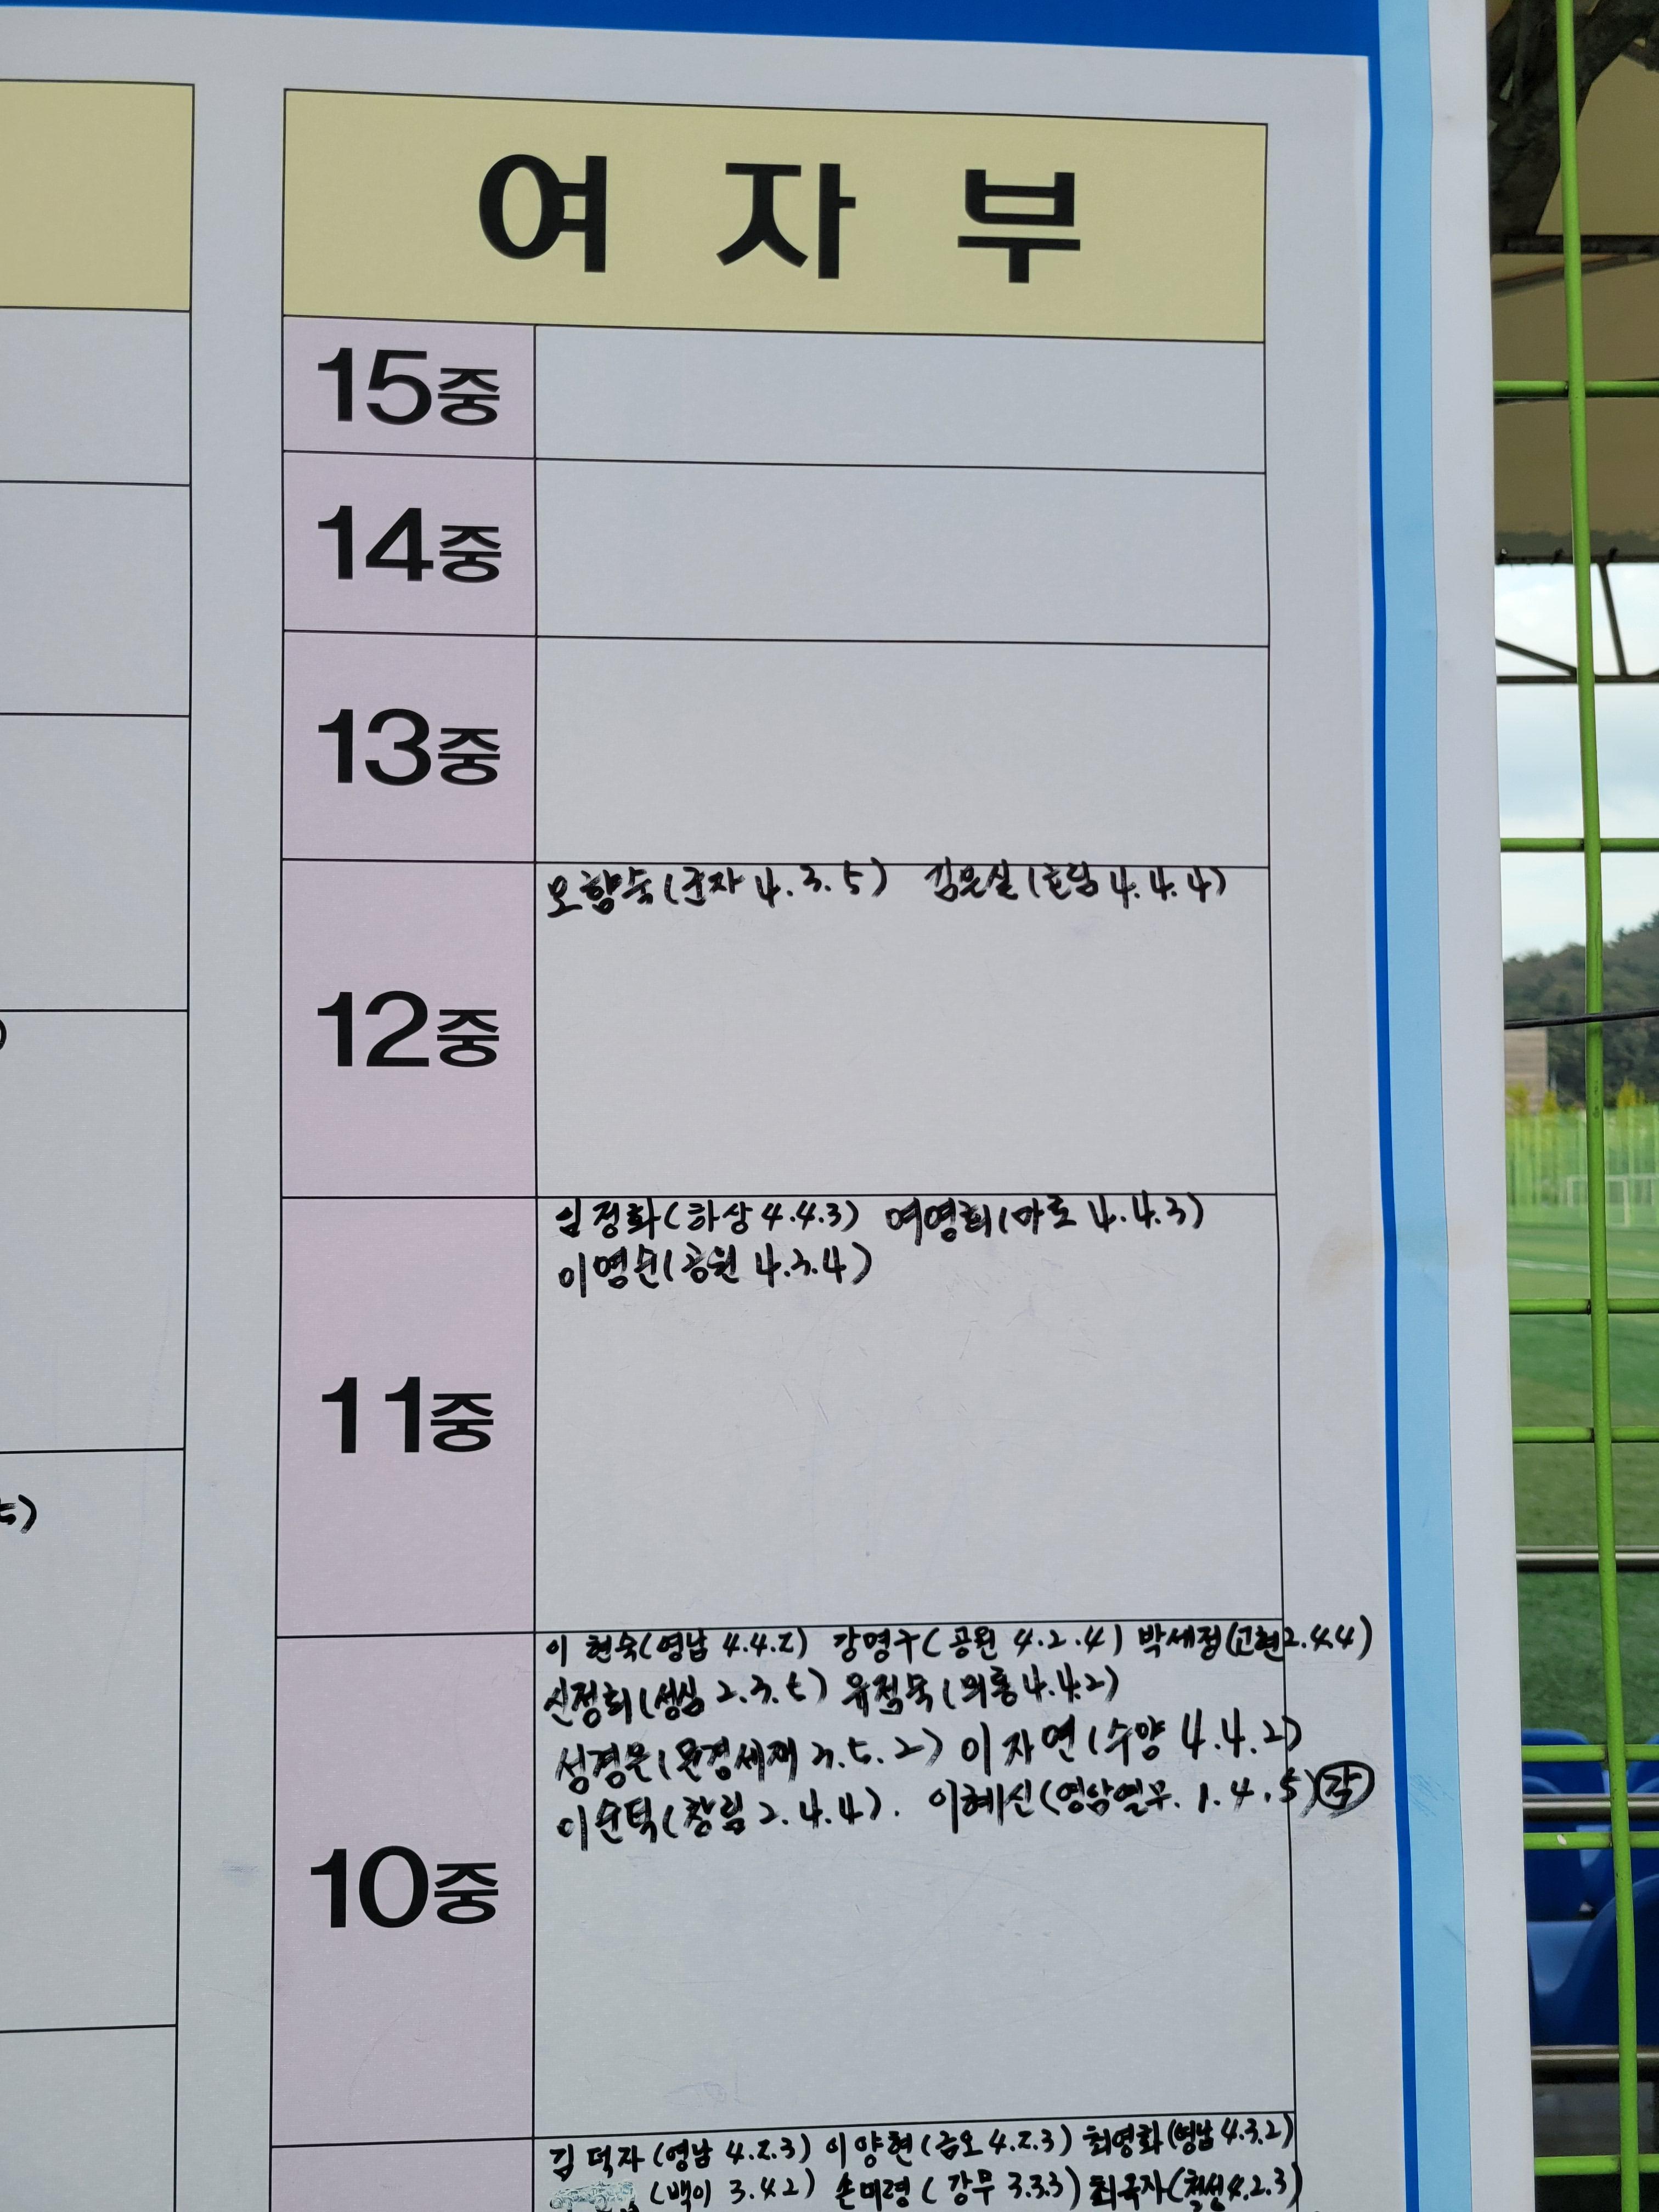 여 자 부
15중
14중
13중
12중
오향숙(군자 4.3.5) 김은실( 4.4.4)
11중
임정화(하상 4.4.3) 여영희(마로 4.4.3)
이영순(공원 4.3.4)
10중
이현숙(영남 4.4.2) 강명구(공원 4.2.4) 박세정(고현 2.4.4)
신정희(성심 2.3.5) 4.4.2)
성경문(문경새재 3.5.2) 이자연(수양 4.4.2)
이순덕(창림 2.4.4). 이혜신( 1.4.5)
김덕자(영남 4.2.3) 이양현(금오 4.2.3) 최영화(영남 4.3.2)
(백이 3.4.2) 손미령(강무 3.3.3) 최옥자(칠성 4.2.3)
5)
)